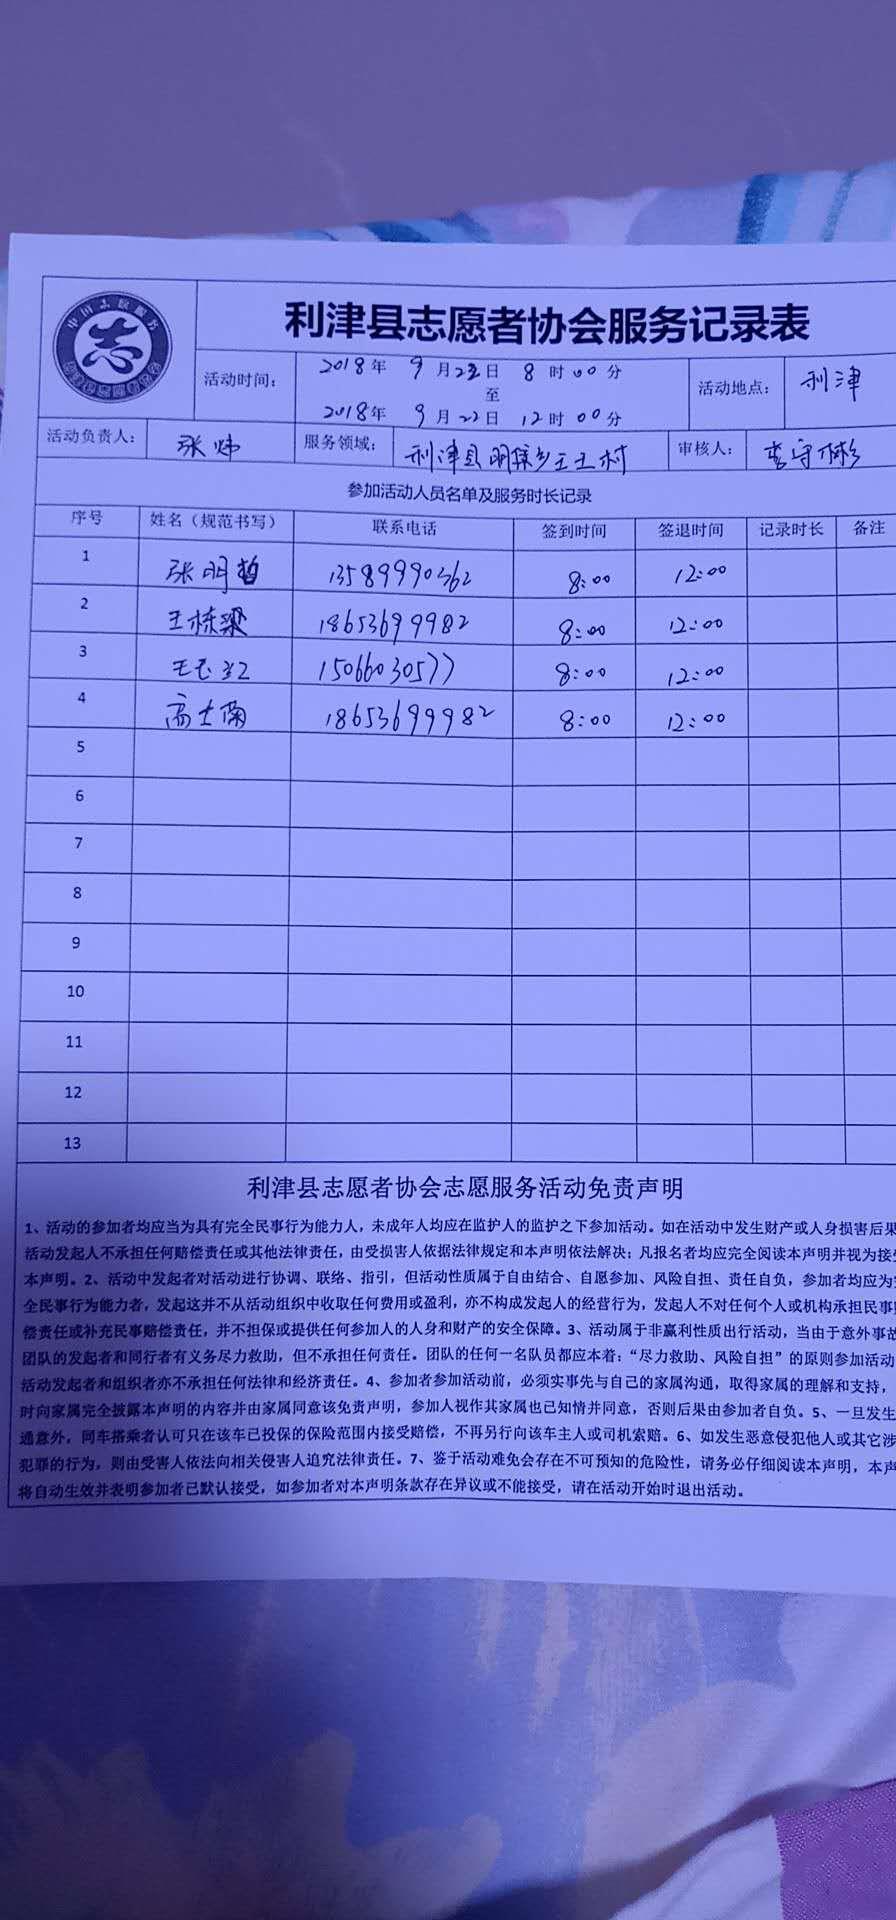 利津县志愿者协会服务记录表
活动时间： 2018年 9月22日 8时00分 至 2018年 9月22日 12时00分 活动地点： 利津
活动负责人： 张炜 服务领域： 利津县明集乡王村 审核人： 李守彬
参加活动人员名单及服务时长记录
序号 姓名（规范书写） 联系电话 签到时间 签退时间 记录时长 备注
1 张明哲 13589990362 8:00 12:00
2 王栋梁 18653699982 8:00 12:00
3 15066030577 8:00 12:00
4 高士菊 18653699982 8:00 12:00
5
6
7
8
9
10
11
12
13
利津县志愿者协会志愿服务活动免责声明
1、活动的参加者均应当为具有完全民事行为能力人，未成年人均应在监护人的监护之下参加活动。如在活动中发生财产或人身损害后果
活动发起人不承担任何赔偿责任或其他法律责任，由受损害人依据法律规定和本声明依法解决；凡报名者均应完全阅读本声明并视为接
本声明。2、活动中发起者对活动进行协调、联络、指引，但活动性质属于自由结合、自愿参加、风险自担、责任自负，参加者均应为
全民事行为能力者，发起这并不从活动组织中收取任何费用或盈利，亦不构成发起人的经营行为，发起人不对任何个人或机构承担民事
偿责任或补充民事赔偿责任，并不担保或提供任何参加人的人身和财产的安全保障。3、活动属于非赢利性质出行活动，当由于意外事故
团队的发起者和同行者有义务尽力救助，但不承担任何责任。团队的任何一名队员都应本着：“尽力救助、风险自担”的原则参加活动
活动发起者和组织者亦不承担任何法律和经济责任。4、参加者参加活动前，必须实事先与自己的家属沟通，取得家属的理解和支持，
时向家属完全披露本声明的内容并由家属同意该免责声明，参加人视作其家属也已知情并同意，否则后果由参加者自负。5、一旦发生
通意外，同车搭乘者认可只在该车已投保的保险范围内接受赔偿，不再另行向该车主人或司机索赔。6、如发生恶意侵犯他人或其它涉
犯罪的行为，则由受害人依法向相关侵害人追究法律责任。7、鉴于活动难免会存在不可预知的危险性，请务必仔细阅读本声明，本声
将自动生效并表明参加者已默认接受，如参加者对本声明条款存在异议或不能接受，请在活动开始时退出活动。